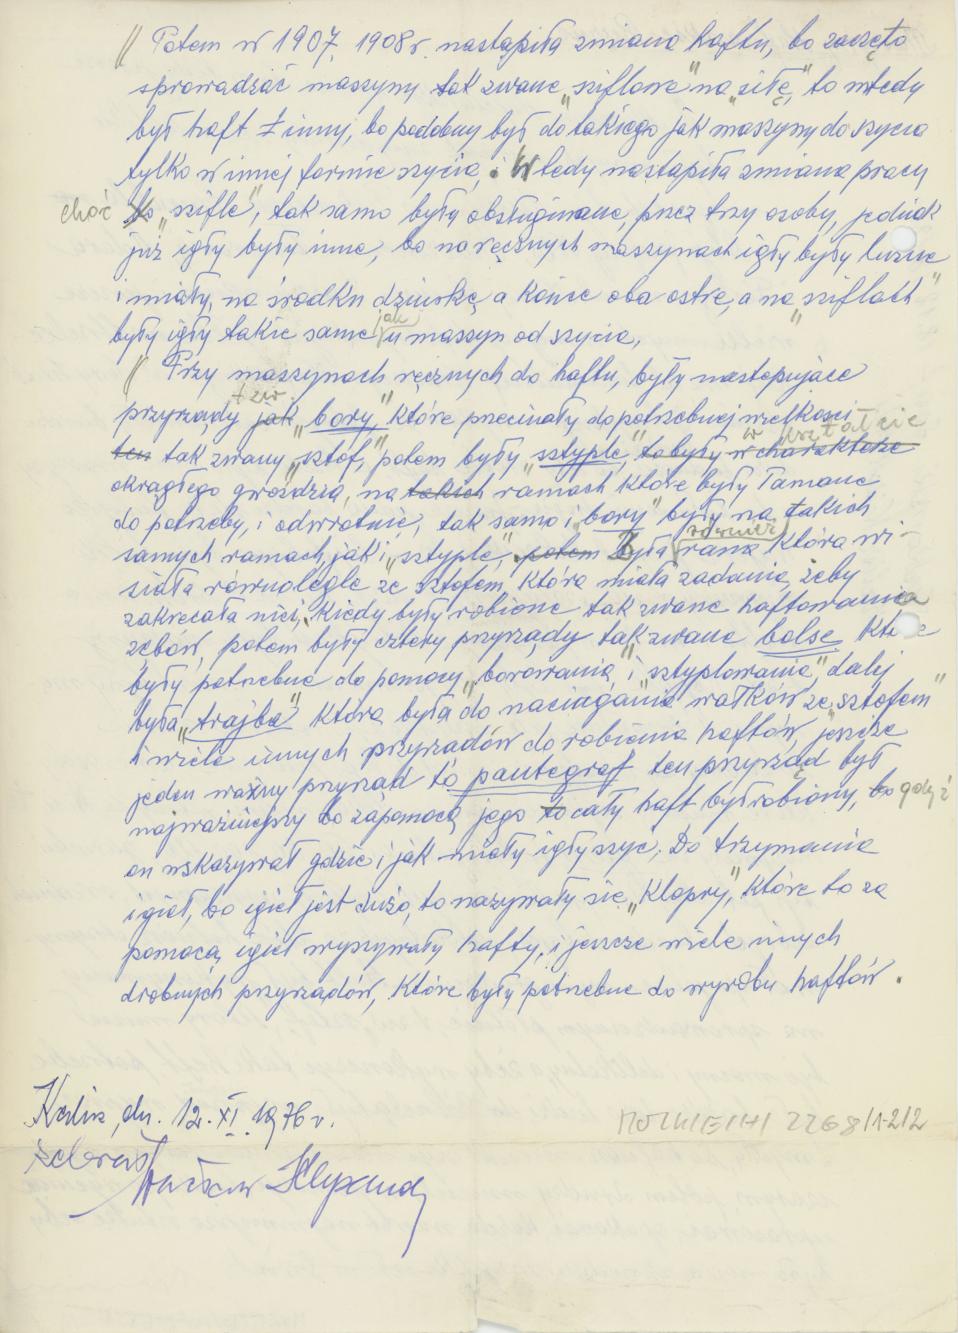 // Potem w 1907, 1908 r. nastąpiła zmiana haftu, bo zaczęto
sprowadzać maszyny tak zwane „sziflowe" na „siłę", to wtedy
był haft inny, bo podobny był do takiego jak maszyny do szycia
tylko w innej formie szycia. Wtedy nastąpiła zmiana pracy
choć „szifle", tak samo były obsługiwane, przez trzy osoby, jednak
już igły były inne, bo na ręcznych maszynach igły były luzne
i miały, na środku dziurkę, a końce oba ostre, a na „sziflach"
były igły takie same jak u maszyn od szycia,
// Przy maszynach ręcznych do haftu, były następujące
przyrządy, jak tzw. „bory", które przecinały do potrzebnej wielkości
ten tak zwany „sztof", potem były „sztyple", to były w charakterze w kształcie
okrągłego gwoździa, na takich ramach które były łamane
do potrzeby, i odwrotnie, tak samo i „bory" były na takich
samych ramach, jak i „sztyple", potem Była również rama która wi-
siała równolegle ze sztofem, która miała zadanie, żeby
zakręcała nici, kiedy były robione tak zwane haftowania
zębów, potem były cztery przyrządy tak zwane „bolse" które
były potrzebne do pomocy „borowania" i „sztyplowania", dalej
była „trajba" która była do naciągania wałków ze „sztofem"
i wiele innych przyrządów do robienia haftów, jeszcze
jeden ważny przyrząd to pantegraf ten przyrząd był
najważniejszy bo zapomocą jego to cały haft był robiony, bo gdyż
on wskazywał gdzie i jak miały igły szyc. Do trzymania
igieł, bo igieł jest dużo, to nazywały się „Klopry", które to za
pomocą igieł wyszywały hafty, i jeszcze wiele innych
drobnych przyrządów, które były potrzebne do wyrobu haftów.
Kalisz, dn. 12. XI 1976 r.
MOZK/E/HI 2268/1-2/2
zebrał
Wacław Klepanda